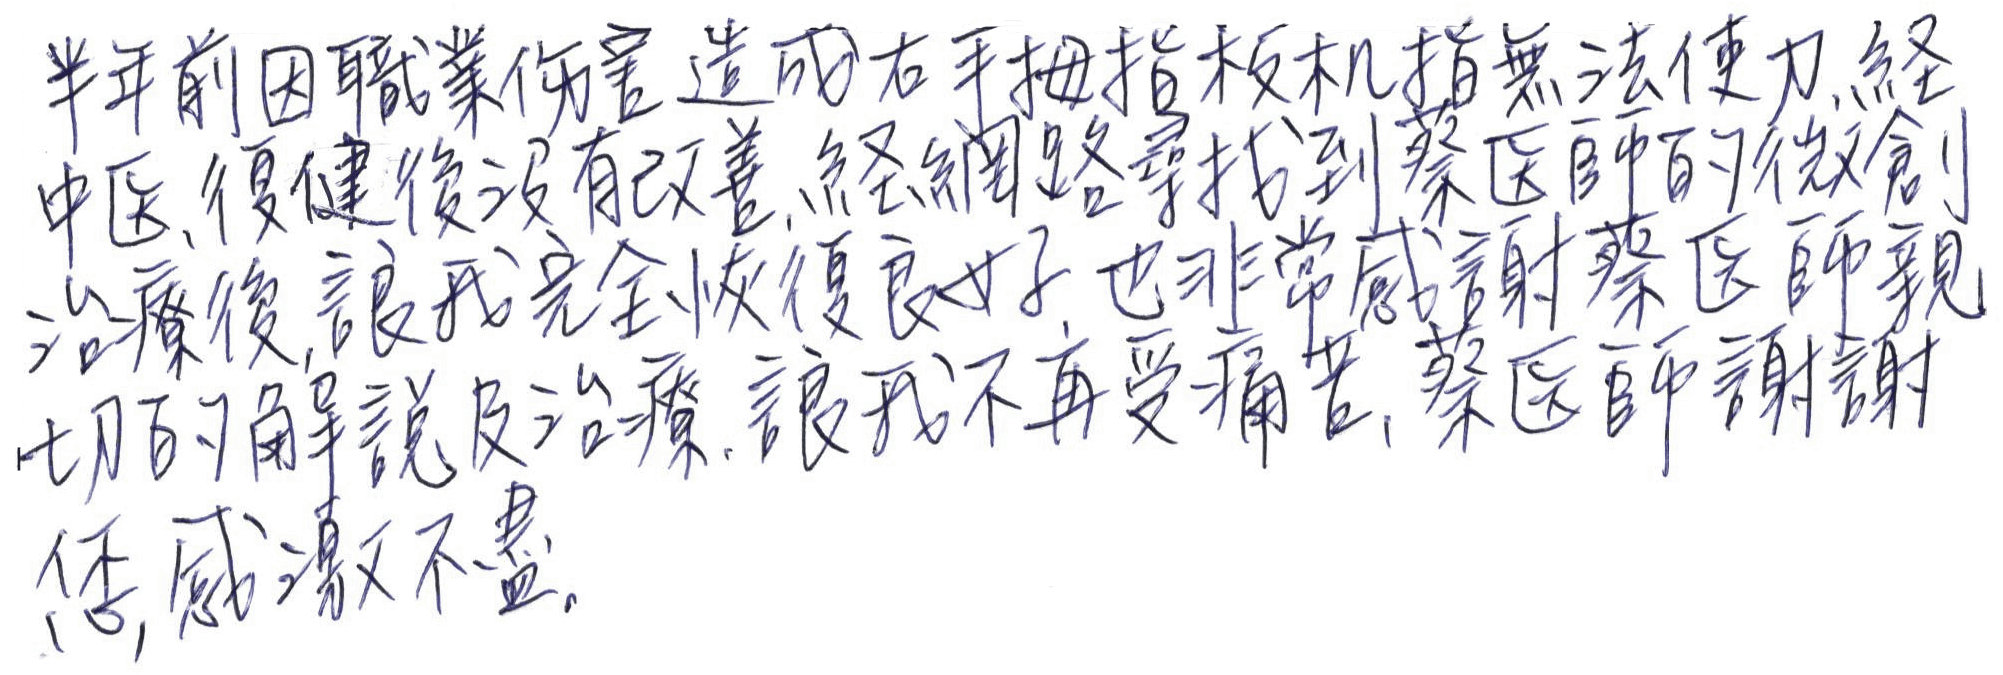 半年前因職業伤害造成右手拇指板机指無法使力、経
中医、復健後没有改善、経網路尋找到蔡医師的微創
治療後,讓我完全恢復良好,也非常感謝蔡医師親
切的解說及治療.讓我不再受痛苦、蔡医師謝謝
您,感激不盡。